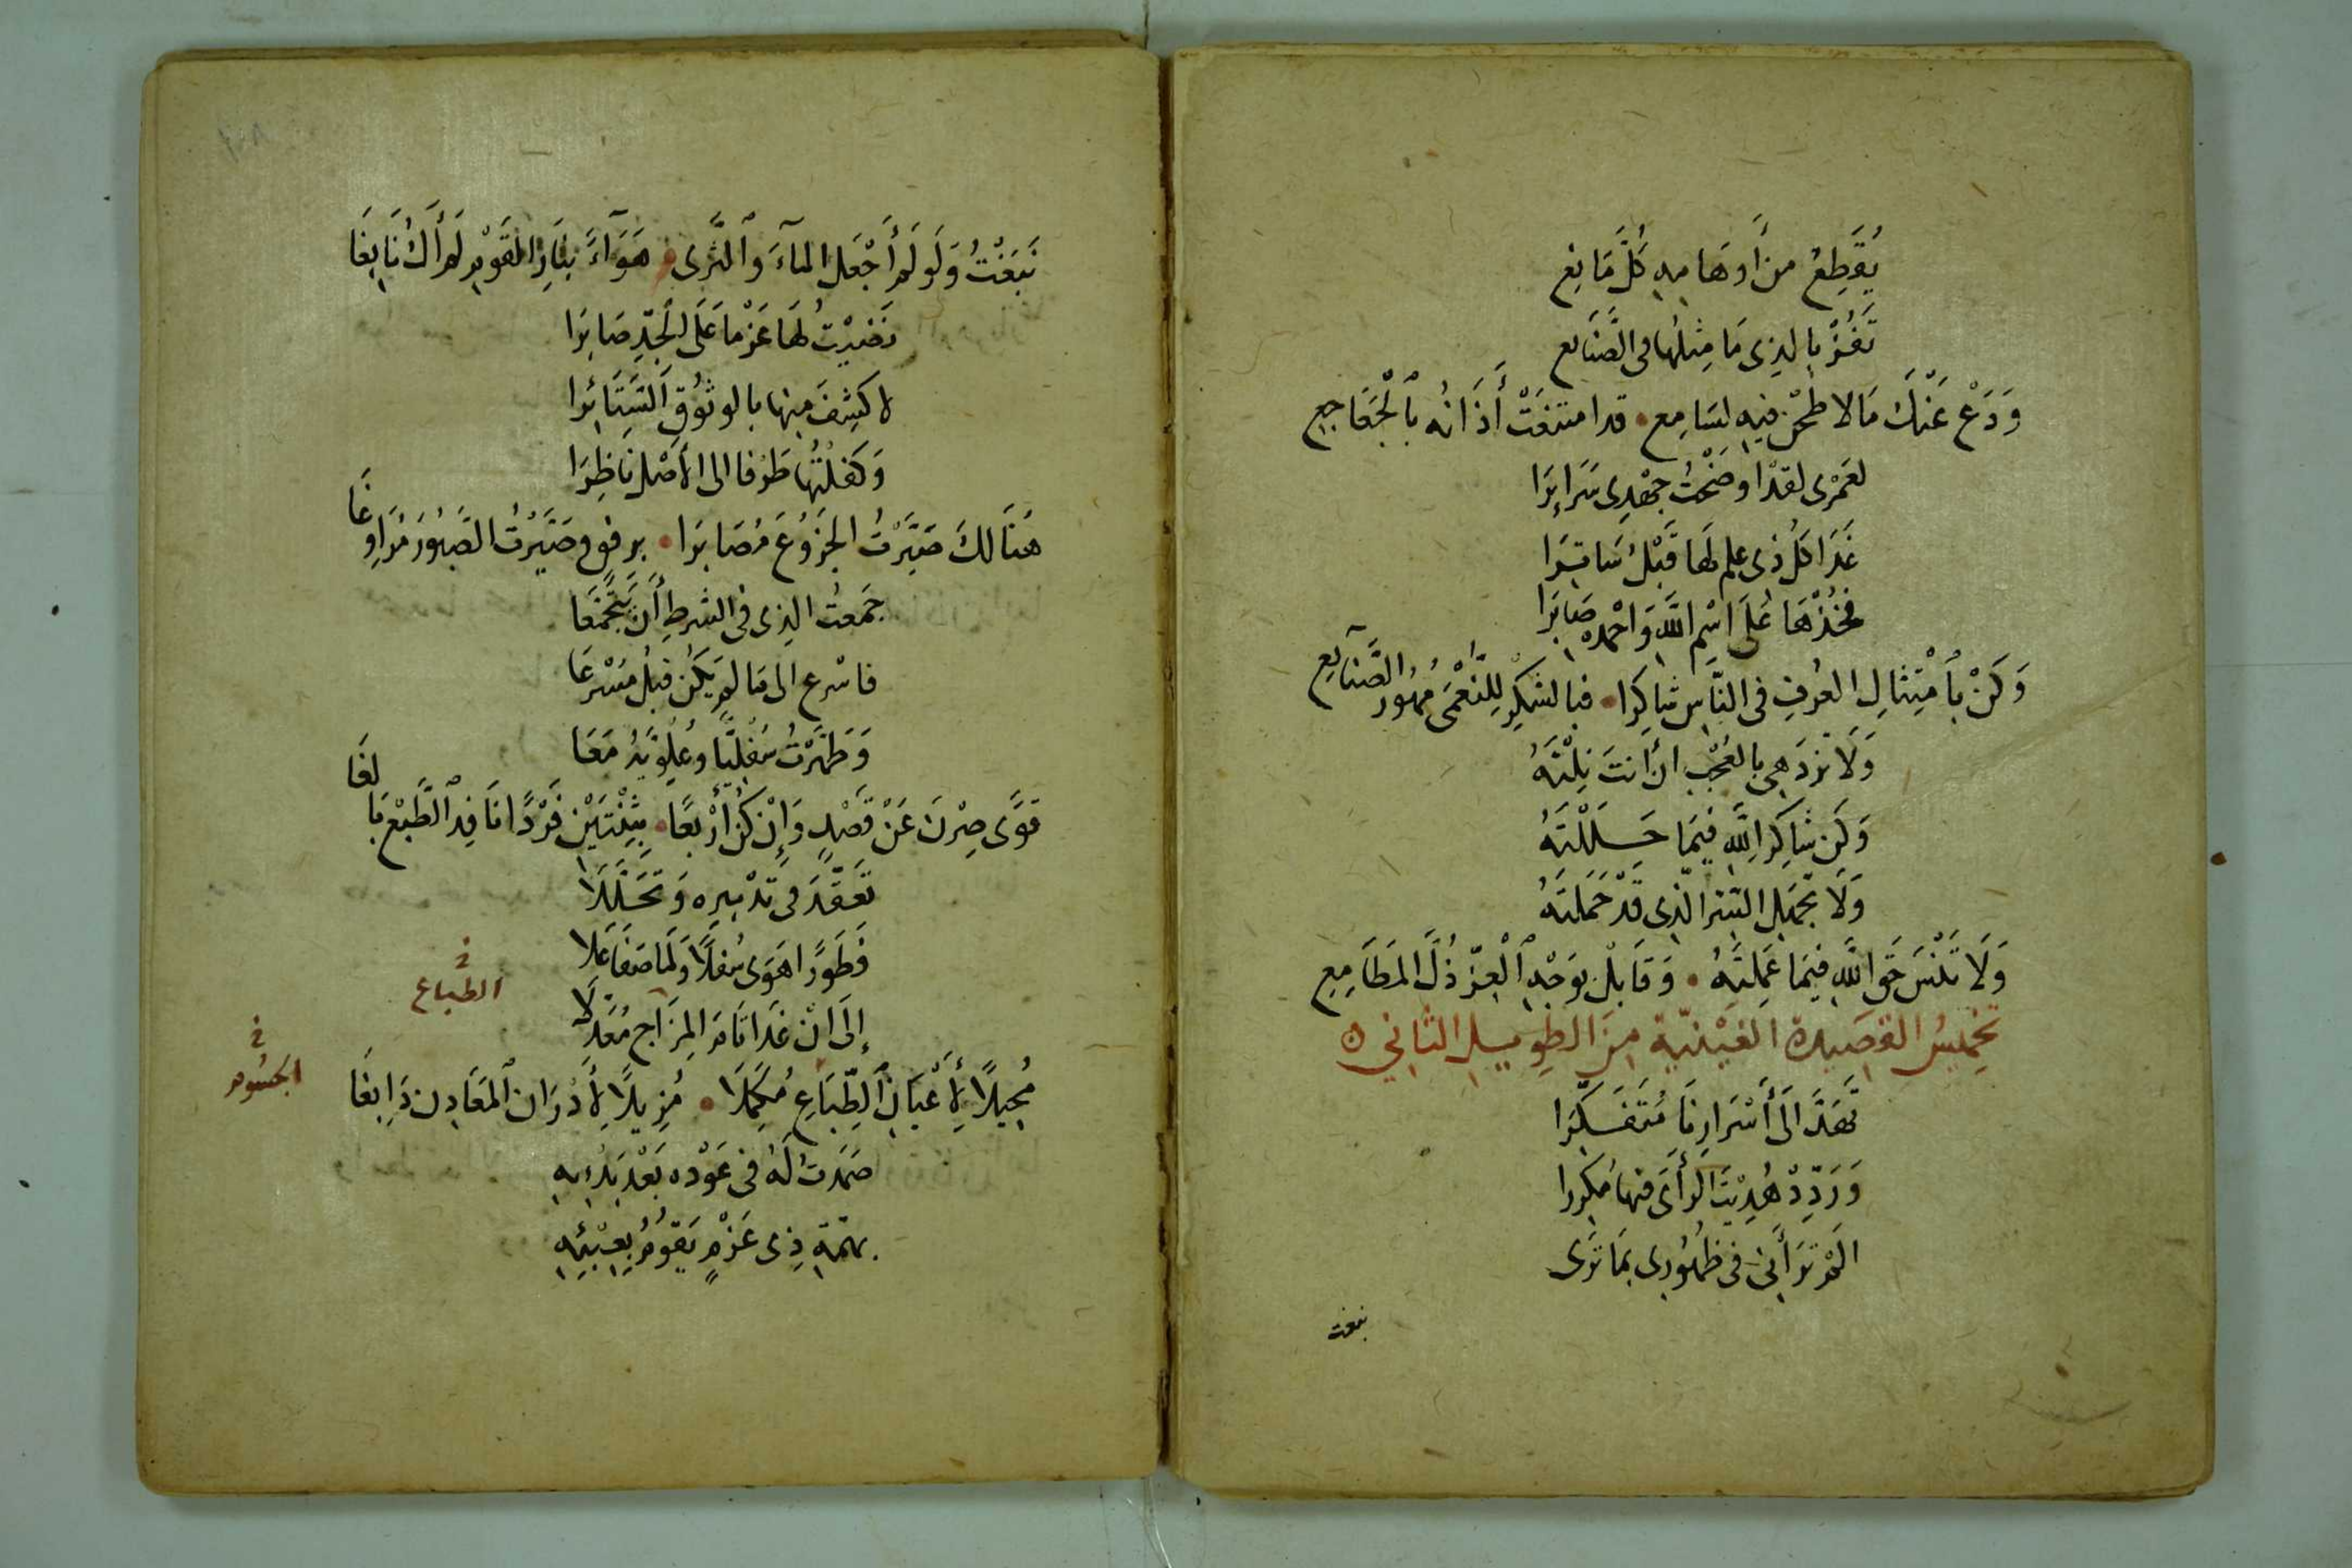 يُقَطِعُ من أَوهَامِهِ كُلَّ مَانِعِ
تَفُزْ بالذِى مَا مِثلُهَا فى الصَّنَايعِ
وَدَعْ عَنْكَ مَالا طحنَ فيهِ لسَامِع قد امتنعَتْ أَذَانُه بٱلْجَعَاجِعِ
لعَمْرِى لقدْ اوضَحْتُ جهْدِى سَرَايِرَا
غَدَا كلُّ ذى علمٍ لهَا قَبْلُ سَاتِرَا
فخُذْهَا عَلَى اسْمِ اللَّهِ وَاحْمدهُ صَابرَا
وَكنْ بٱمْتِثَالِ العُرفِ فى النَّاسِ شَاكِرا فبالشكرِ لِلنُّعْمَى مُهُور الصَّنَايِعِ
وَلَا تزدَهِى بالعُجْبِ ان أنتَ نِلْتَهُ
وَكن شاكِرا للَّهِ فيمَا حَلَلْتَهُ
وَلَا تجهَلِ السّر الّذِى قَدْ حَمَلتَهُ
وَلَا تَنْسَ حَق اللَّهِ فيمَا عَمِلتَهُ وَقَابلْ بوَجْهِ ٱلْعِزّ ذُلَّ المَطَامِعِ
تخمِيسُ القصَيدة الغَيْنيّة مِنَ الطويلِ الثاني
تَهَدَّ الَى أَسْرَارِنَا مُتَفَكِّرَا
وَرَدِّدْ هُدِيْتَ الرأىَ فيهَا مُكررا
الَمْ تَرَ أَنى فى ظهُوُرِى بمَا تَرَى
نبغت
نَبَغْتُ وَلَو لَم أَجْعَل المآءَ وَٱلثَّرى هَوَآءً بنَارِ القَوْمِ لَم أَكُ نَابِغَا
نَضَيْتُ لهَا عَزْما عَلَى الجدِّ صَابِرَا
لاكشِفَ مِنها بالوثُوُقِ السَّتَائِرا
وَكفلْتُهَا طَرْفا الى الأصْل نَاظِرَا
هُنَالكَ صَيَّرْتُ الجَزُوُعَ مُصَابرَا برفق وَصَيَّرْتُ الصَّبُوُرَ مُرَاوِغَا
جَمَعتُ الذِى فى الشرطِ أَن يَتَجَمَّعَا
فاسْرع الى مَا لم يَكُن قبلُ مسْرعَا
وَطَهَّرْتُ سُفْلِيًّا وعُلْوِيَّهُ مَعَا
قوَىً صِرْنَ عَنْ قَصْدٍ وَإِنْ كُنَّ أَرْبعًا بثِنْتَيْنِ فَرْدًا نَافِذ ٱلطَّبْعِ بَالغَا
تَعَقَّدَ فى تَدْبيرِه وَتَحَلَّلَا
فَطَوْرًا هَوَى سُفلًا وَلمَا صَفَا عَلَا
إلَى انْ غَدَا تَامَ المِزَاجِ مُعَدلَا
الطباع
مُحِيلًا لِأَعْيَانِ ٱلطِّبَاعِ مُكَمِّلَا مُزِيلًا لِأَدْرَان ٱلمَعَادِن دَابِغَا
الجسُوم
صَمَدتُ لَهُ فى عَوْدِه بَعْد بَدْئِهِ
بهمّةِ ذِى عَزْمٍ يَقوُمُ بِعِبْئِهِ